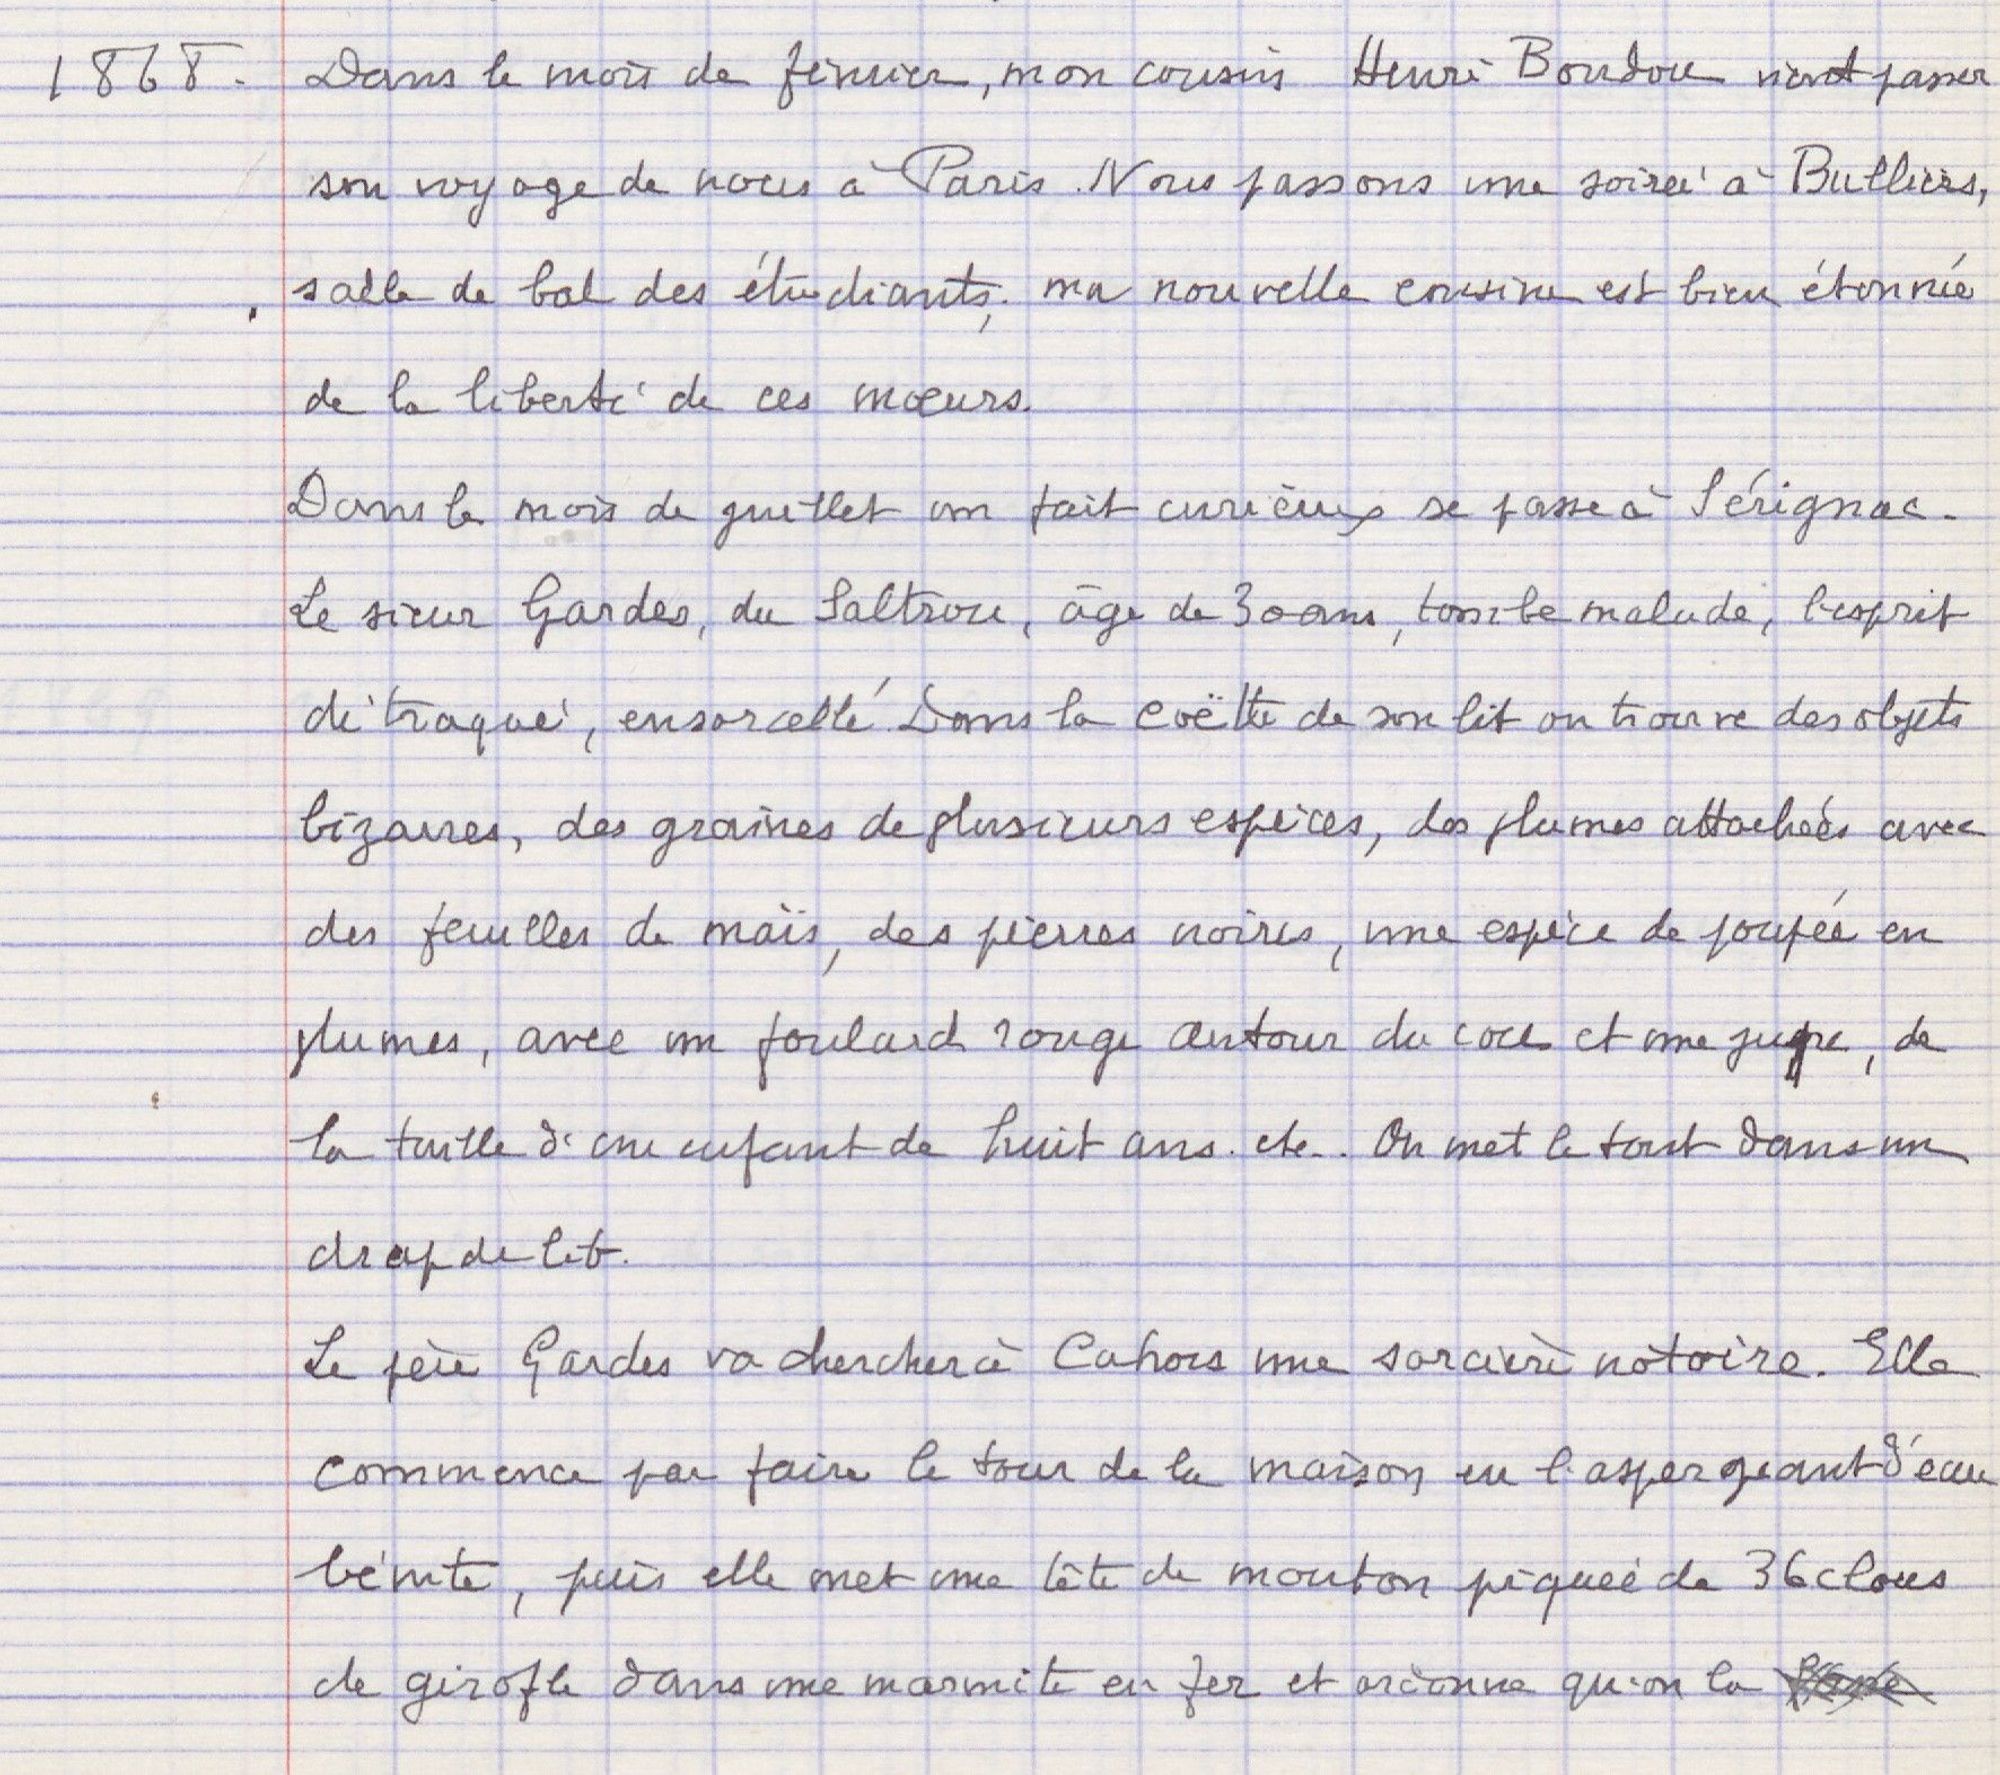 1868. Dans le mois de février, mon cousin Henri Boudou vient passer
son voyage de noces à Paris. Nous passons une soirée à Bulliers,
salle de bal des étudiants, ma nouvelle cousine est bien étonnée
de la liberté de ces mœurs.
Dans le mois de juillet un fait curieux se passe à Sérignac.
Le sieur Gardes, du Saltrou, âgé de 30 ans, tombe malade, l'esprit
détraqué, ensorcellé. Dans la coëtte de son lit on trouve des objets
bizarres, des graines de plusieurs espèces, des plumes attachées avec
des feuilles de maïs, des pierres noires, une espèce de poupée en
plumes, avec un foulard rouge autour du cou et une jupe, de
la taille d'un enfant de huit ans. etc.. On met le tout dans un
drap de lit.
Le père Gardes va chercher à Cahors une sorcière notoire. Elle
commence par faire le tour de la maison en l'aspergeant d'eau
bénite, puis elle met une tête de mouton piquée de 36 clous
de girofle dans une marmite en fer et ordonne qu'on la